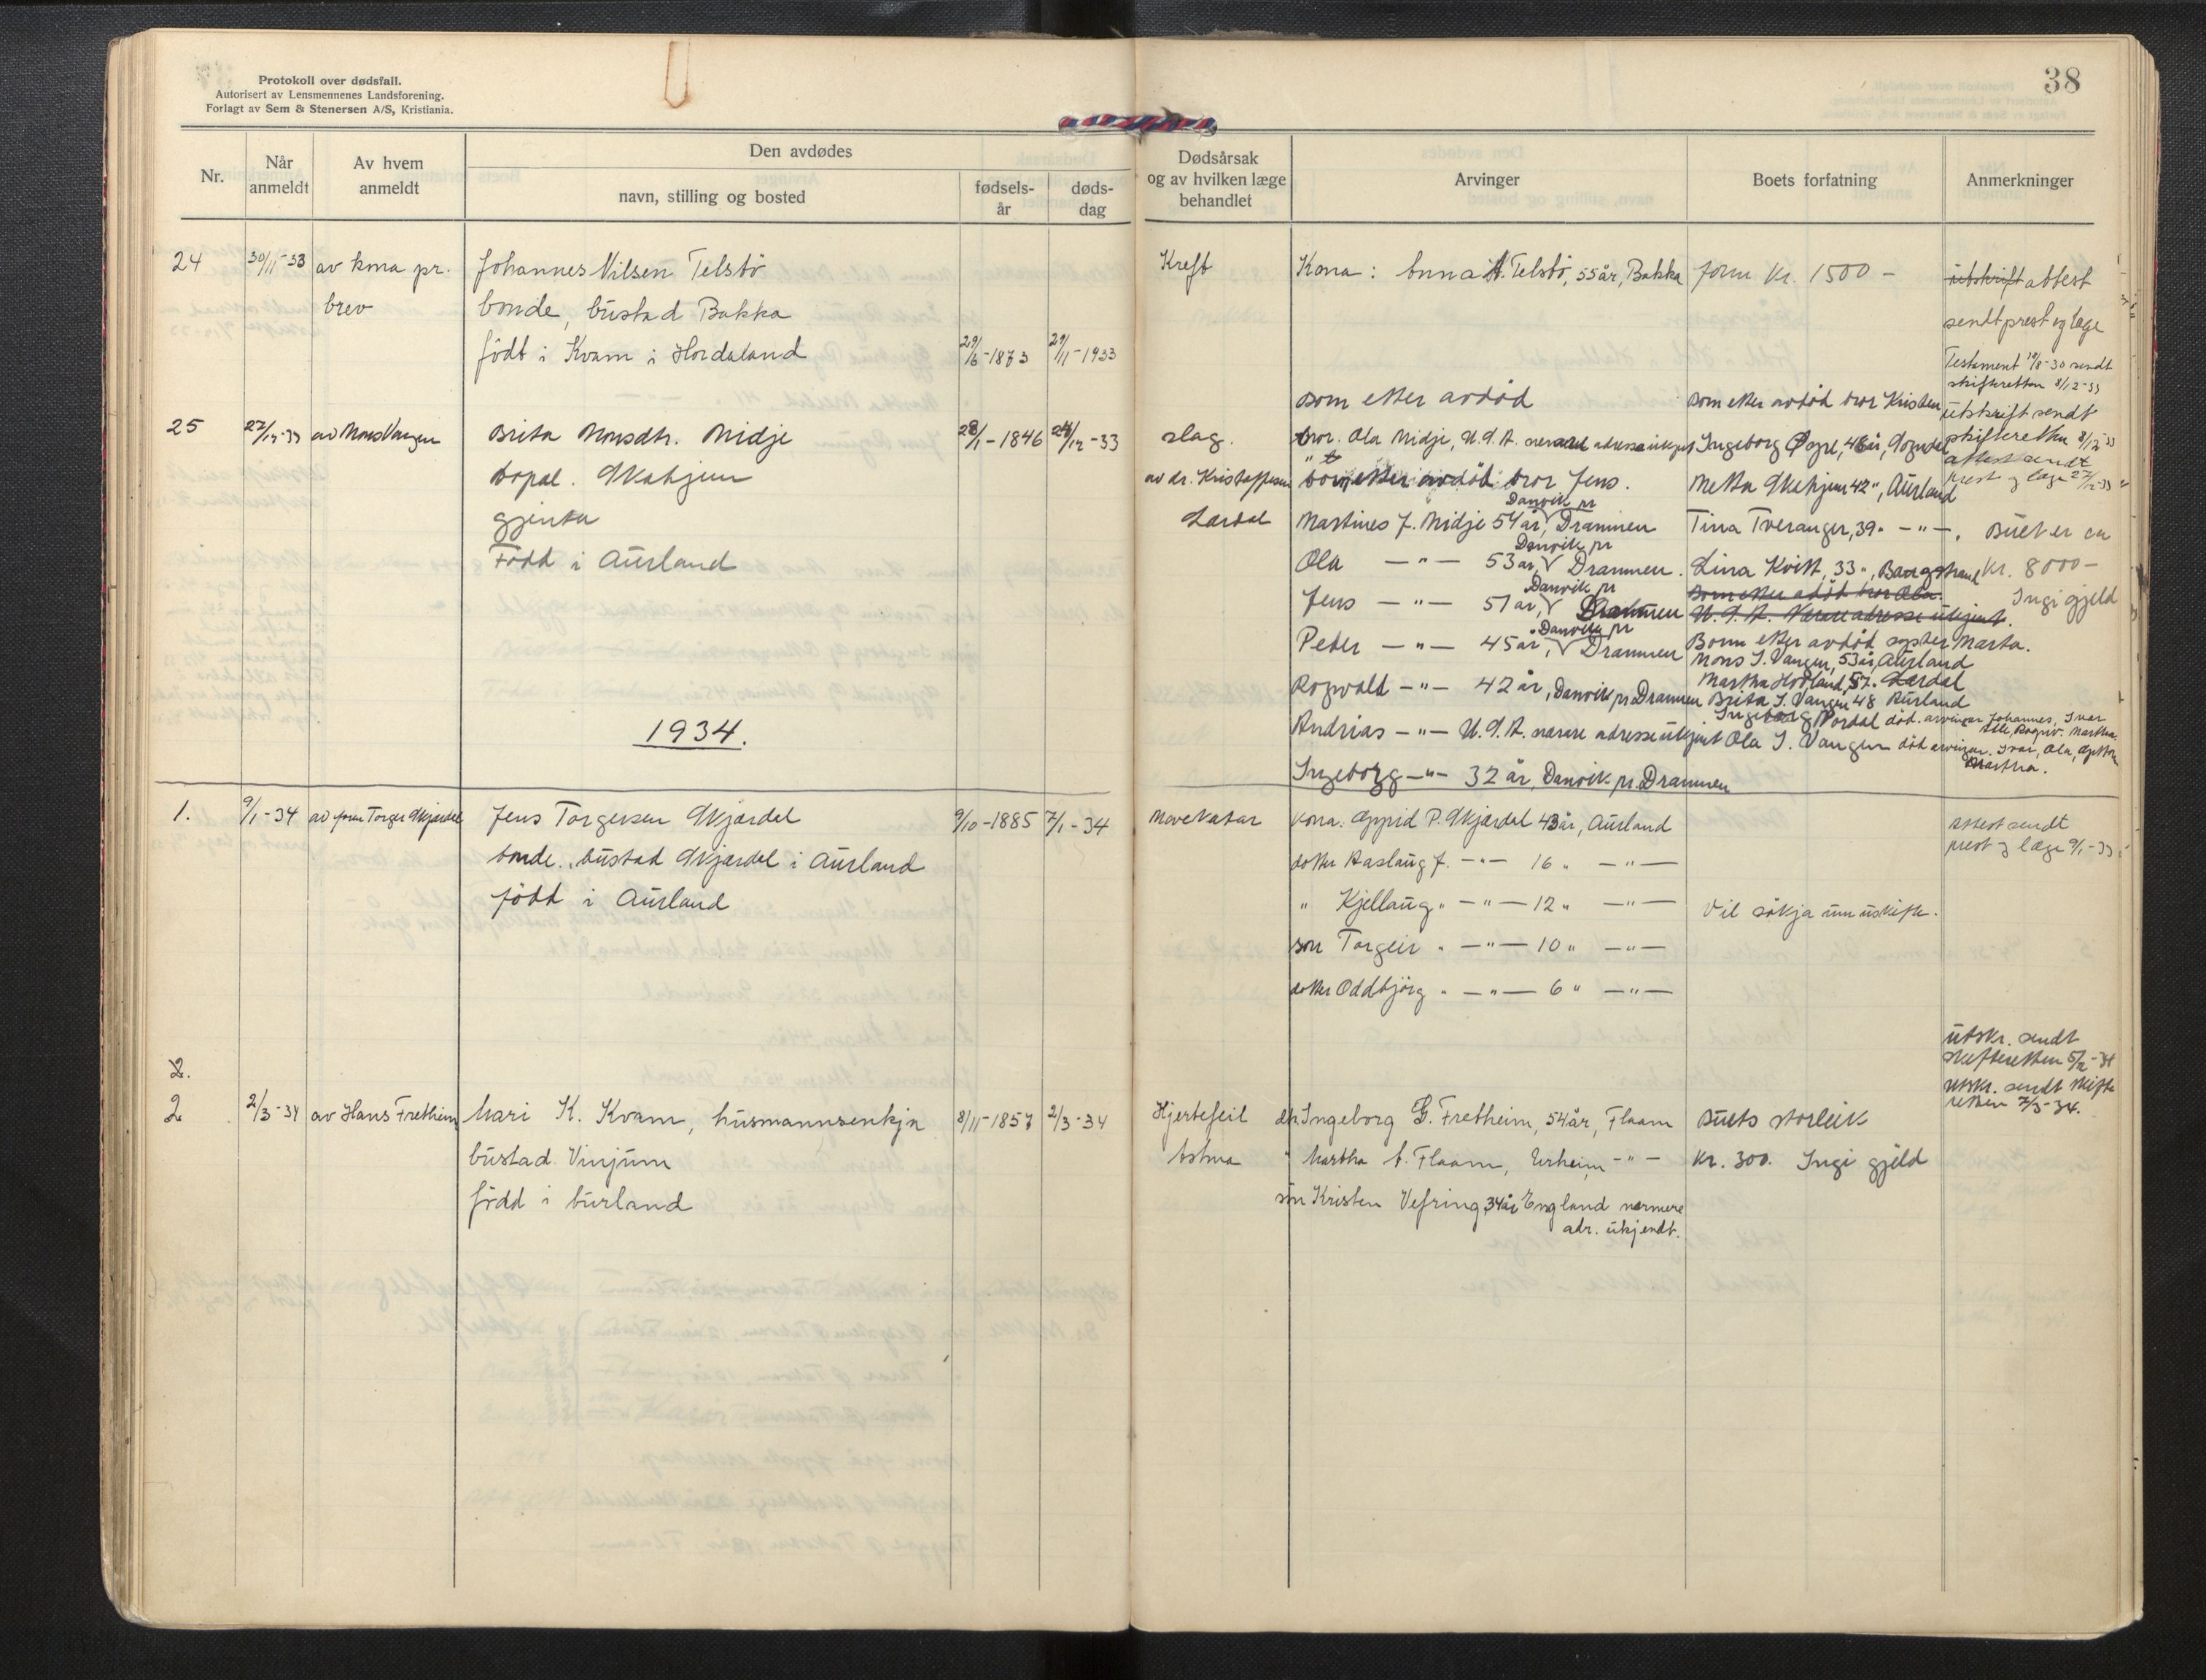 38
Protokoll over dødsfall.
Autorisert av Lensmennenes Landsforening.
Forlagt av Sem & Stenersen A/S, Kristiania.
Nr.
Når anmeldt
Av hvem anmeldt
Den avdødes
navn, stilling og bosted
fødsels-år
døds-dag
Dødsårsak og av hvilken læge behandlet
Arvinger
Boets forfatning
Anmerkninger
24 30/11-33 av kona pr. Johannes Nilsen Telstø
brev bonde, bustad Bakka
født i Kvam i Hordaland 29/6-1873 29/11-1933
Kreft
Kona: Anna A. Telstø, 55 år, Bakka
form Kr. 1500 -
utskrift attest
sendt prest og læge
Testament 19/8-30 sendt
skifteretten 8/12-33
25 27/12-33 av Mons Vangen Brita Monsdtr. Nidje 28/1-1846 24/12-33
Skahjem
gjenta
Född i Aurland
slag.
av dr. Kristoffersen
Lærdal
som etter avdöd
bror. Ola Nidje, U.S.A. nærare adresse ukjent
born etter avdöd bror Jens.
Martines J. Nidje 54 år, Danvik pr Drammen
Ola — " — 53 år, Danvik pr Drammen.
Jens — " — 51 år, Danvik pr Drammen
Peder — " — 45 år, Danvik pr Drammen
Rognvald — " — 42 år, Danvik pr. Drammen
Andrias — " — U.S.A. nærare adresse ukjent
Ingeborg — " — 32 år, Danvik pr. Drammen
som etter avdöd bror Kristen
Ingeborg
Metta Skahjem 42 ", Aurland
Tina Tveranger, 39 " — " —.
Lina Kvist, 33 ",
Born etter avdöd bror Ola.
U.S.A. Nærare adresse ukjent.
Born etter avdöd syster Marta.
Mons I. Vangen, 53 år, Aurland
Martha Hovland, 57. Lærdal
Brita I. Vangen 48 Aurland
Ingeborg död. arvinger Johannes, Ivar
Ola I. Vangen död arvingar. Ivar, Ola,
Martha.
utskrift sendt
skifteretten 8/12-33
attest sendt
prest og læge 27/12-33
Buet er ca
Kr. 8000 -
Ingi gjeld
1934.
1. 9/1-34 av faren Torger Skjærdal Jens Torgersen Skjærdal 9/10-1885 7/1-34
bonde. bustad Skjærdal i Aurland
född i Aurland
Mavekatar
Kona. P. Skjærdal 43 år, Aurland
dotter Aaslaug J. — " — 16 " — " —
" Kjellaug " — " — 12 " — " —
son Torgeir " — " — 10 " — " —
dotter Oddbjörg " — " — 6 " — " —
Vil søkja um uskifte.
Attest sendt
prest og læge 9/1-33
utskr. sendt
skifteretten 5/2-34
2.
2 2/3-34 av Hans Fretheim Mari K. Kvam, husmannsenkja 8/11-1857 2/3-34
bustad Vinjum
född i Aurland
Hjertefeil
Astma
dtr. Ingeborg G. Fretheim, 54 år, Flaam
" Martha A. Flaam, — " —
sön Kristen Vefring, 34 år England nærmere
adr. ukjendt.
Buets storleik
Kr. 300. Ingi gjeld
utskr. sendt skifte
retten 7/3-34.